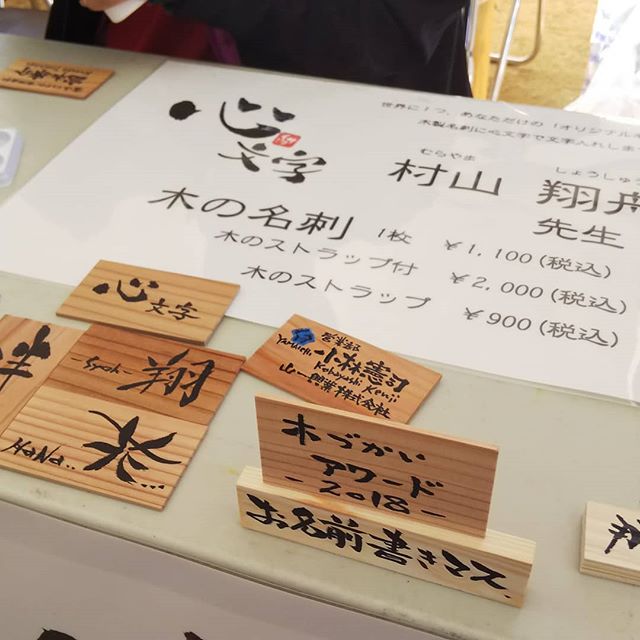 世界に1つ、あなただけの「オリジナル
木製名刺に心文字で文字入れしま
心文字
むらやま しょうしゅう
村山 翔舟
先生
木の名刺 1枚 ¥1,100(税込)
木のストラップ付 ¥2,000(税込)
木のストラップ ¥900(税込)
心文字
絆
-Syoh-
翔
Kana
営業部
Yamaichi
小林憲司
Kobayashi Kenji
山一興業株式会社
木づかい
アワード
-2018-
お名前書きマス